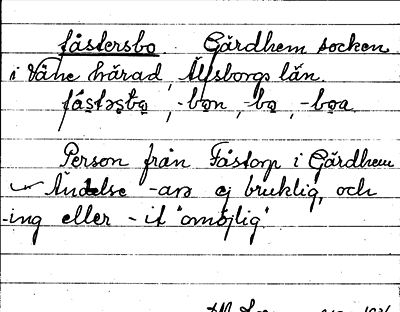 fåstersbo Gärdhem socken
i Väne härad, Älfsborgs län.
fástəs̱ḇo̱, -bo̱n, -bo̱, -bo̱a
Person från Fåstorp i Gärdhem
Ändelse -arə ej bruklig, och
-ing eller -it "omöjlig"